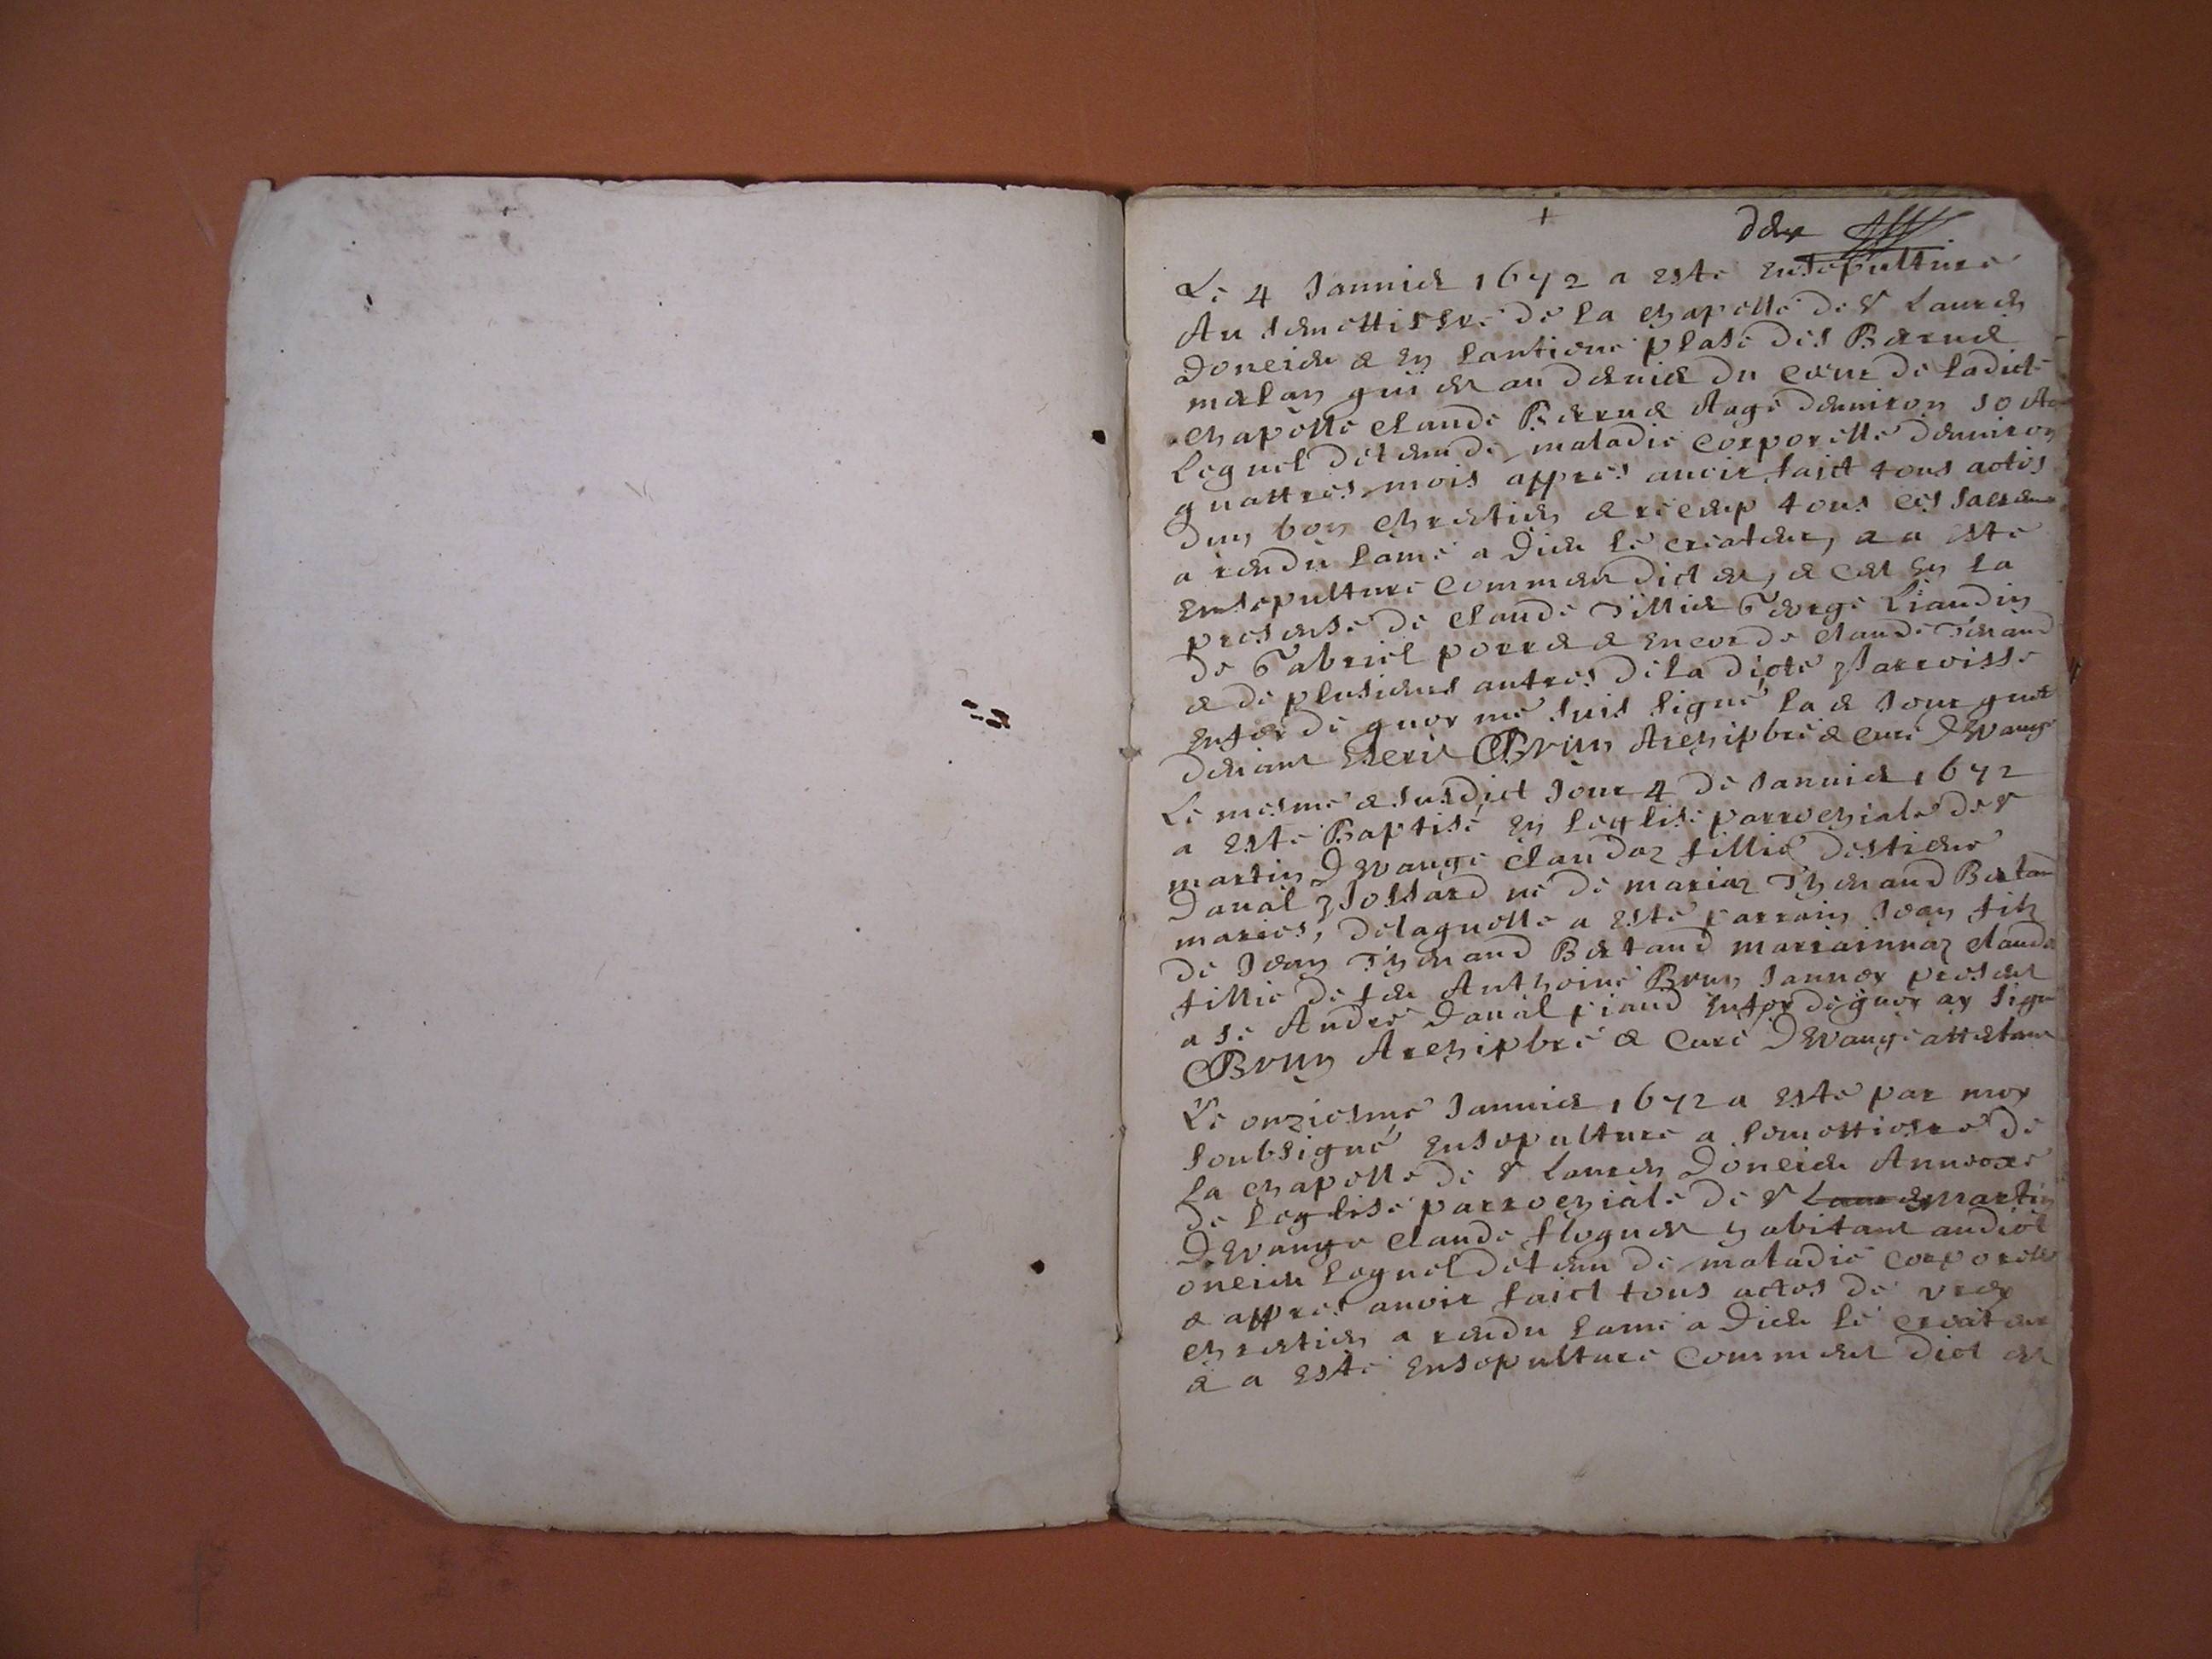 +
Le 4 Januier 1672 a este ensepulture
Au semettiere de la chapelle de St Lauren
Doneieu & en lantiene plase des Berue
mesan qui est au dernier du ceur de ladicte
chapelle claude Berrue Aage denuiron 50 An
Lequel detenu de maladie corporelle denuiron
quattres mois appres auoir faict tous actes
dun bon chrestien & receup tous ces sacrem
a rendu lame a Dieu le createur, & a este
ensepulture comment dict est, & cest en la
presense de claude Tillier George Liandin
de Gabriel porret & encor de claude Tenand
& de plusieurs autres de la dicte Parroisse
en foy de quoy me suis signé la & Jour que
deuant Escrit Brun Archipbre & curé DEvange
Le mesme & susdict Jour 4 de Januier 1672
a este Baptisé en leglise parrochiale de St
martin DEvange claudaz fillie destiene
Daual Possard né de mariaz Thenand Bertand
mariés, de laquelle a este parrain Jean filz
de Jean Thenand Bertand marrainnaz clauda
fillie de feu Anthoine Brun Jannex presens
a se André Daual piaud en foy de quoy ay signé
Brun Archipbre & curé DEvange attestant
Le onziesme Januier 1672 a este par moy
soubsigné ensepulture a semettiere de
la chapelle de St Lauren Doneieu Annexe
de leglise parrochiale de St Lauren martin
DEvange claude floquet habitant audict
oneieu lequel detenu de maladie corporelle
& appres auoir faict tous actes de vray
chrestien a rendu lame a Dieu le createur
& a este ensepulture comment dict est